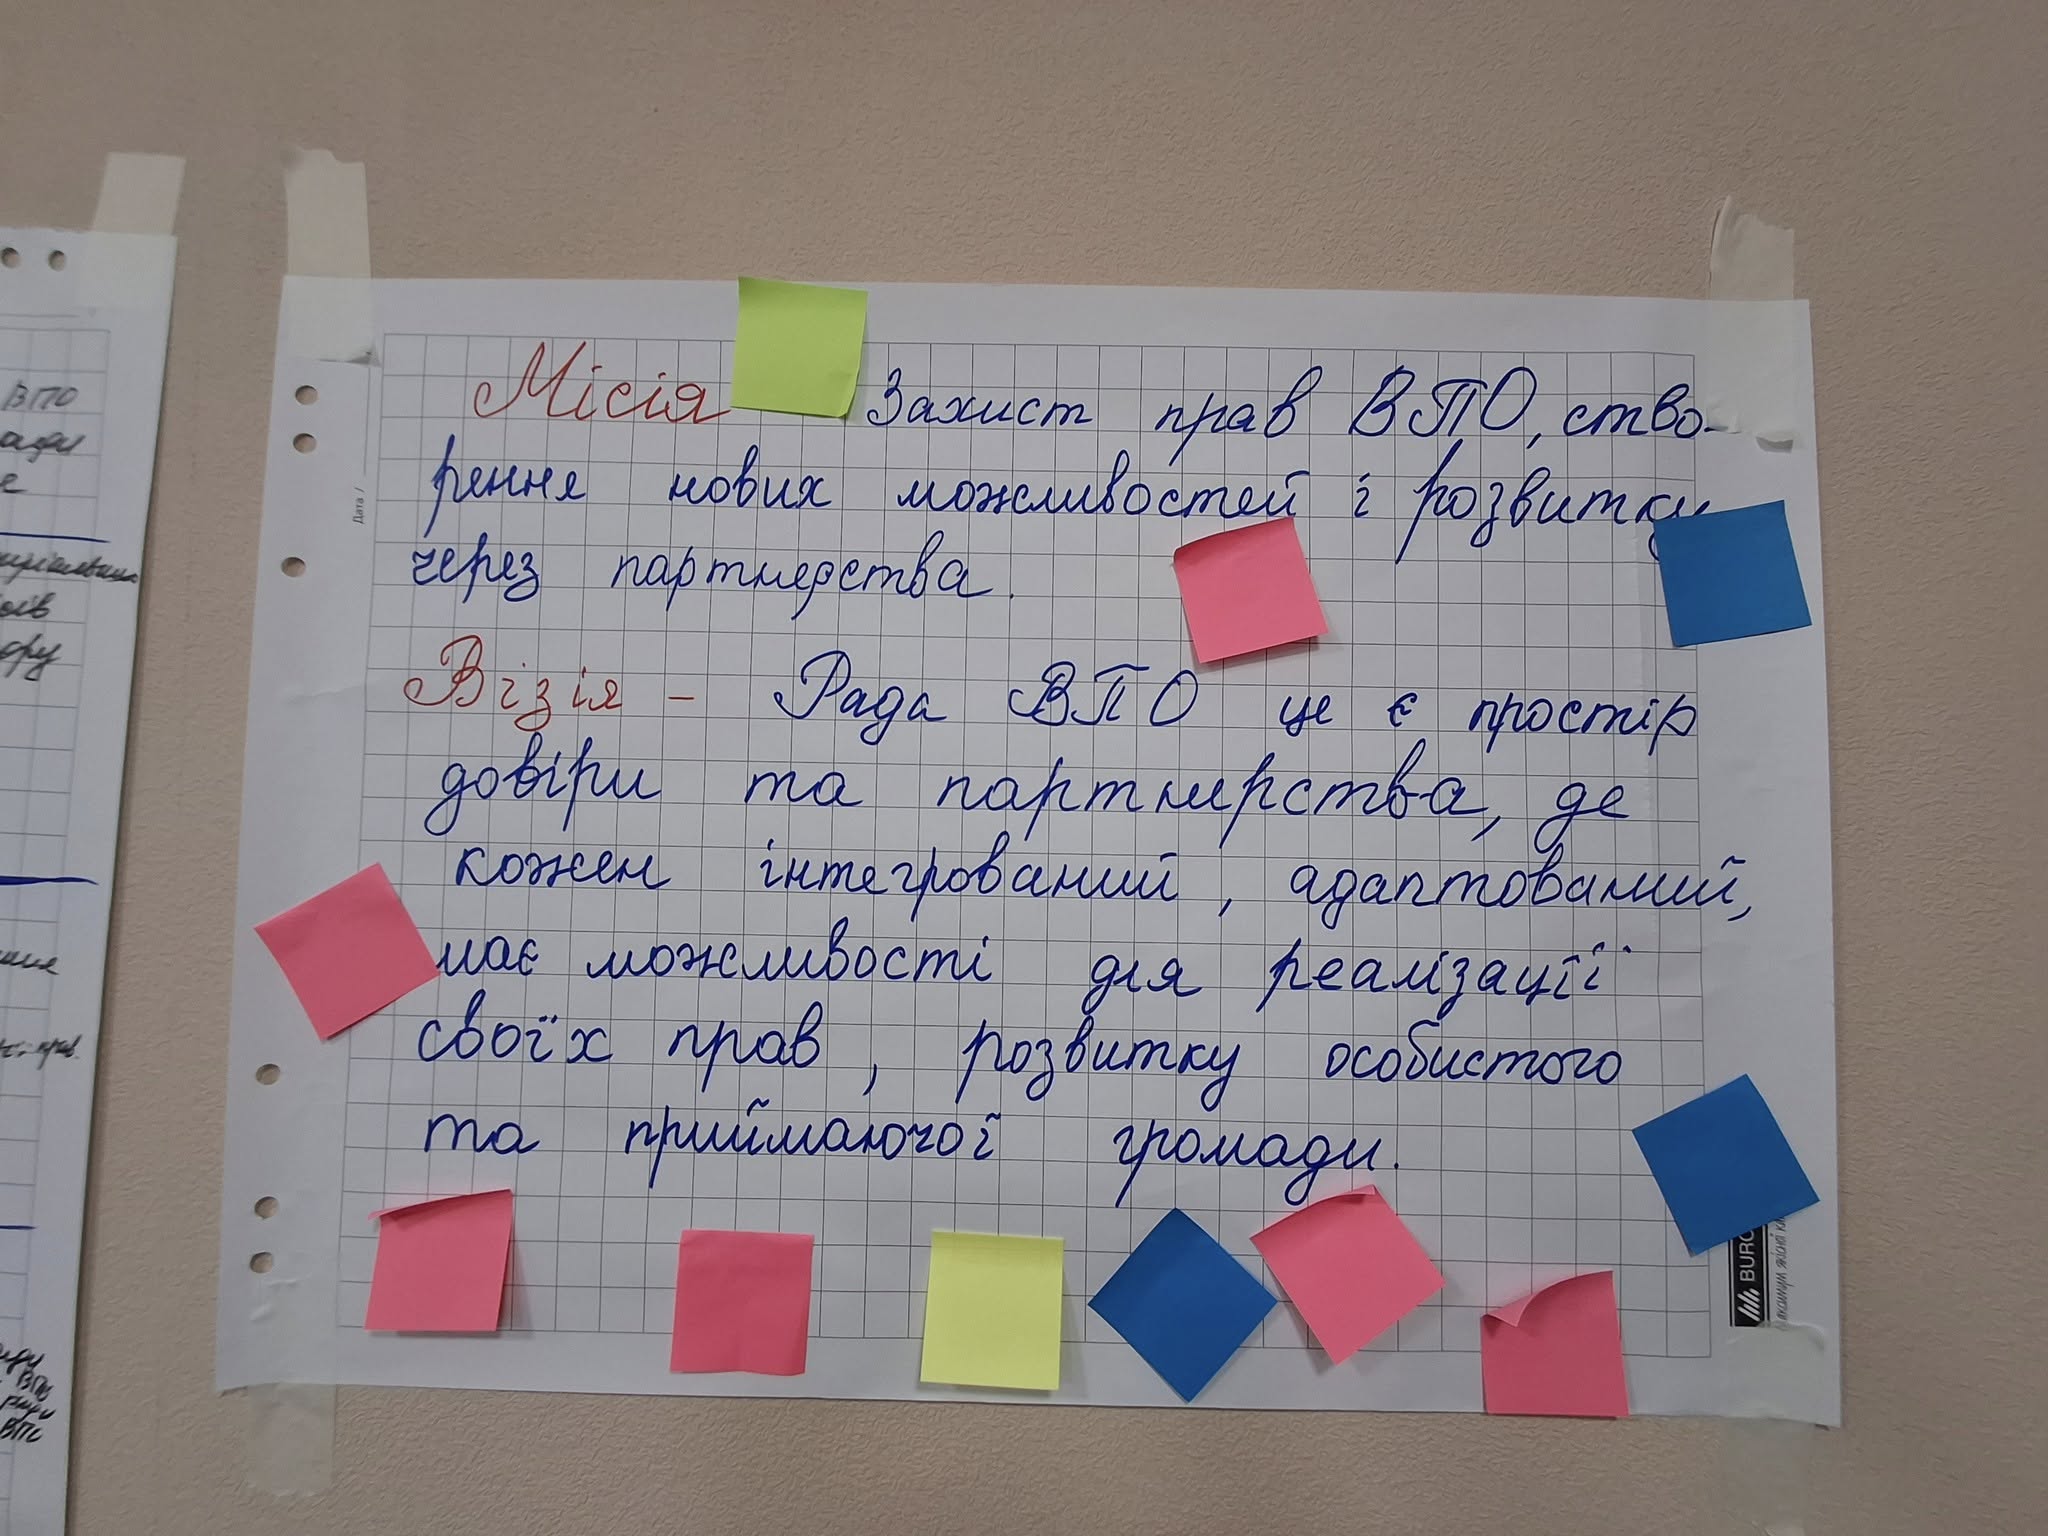 Місія Захист прав ВПО, ство-
рення нових можливостей і розвитку
через партнерства.
Візія - Рада ВПО це є простір
довіри та партнерства, де
кожен інтегрований, адаптований,
має можливості для реалізації
своїх прав, розвитку особистого
та приймаючої громади.
Дата /
BURO
ВПО
ВПО